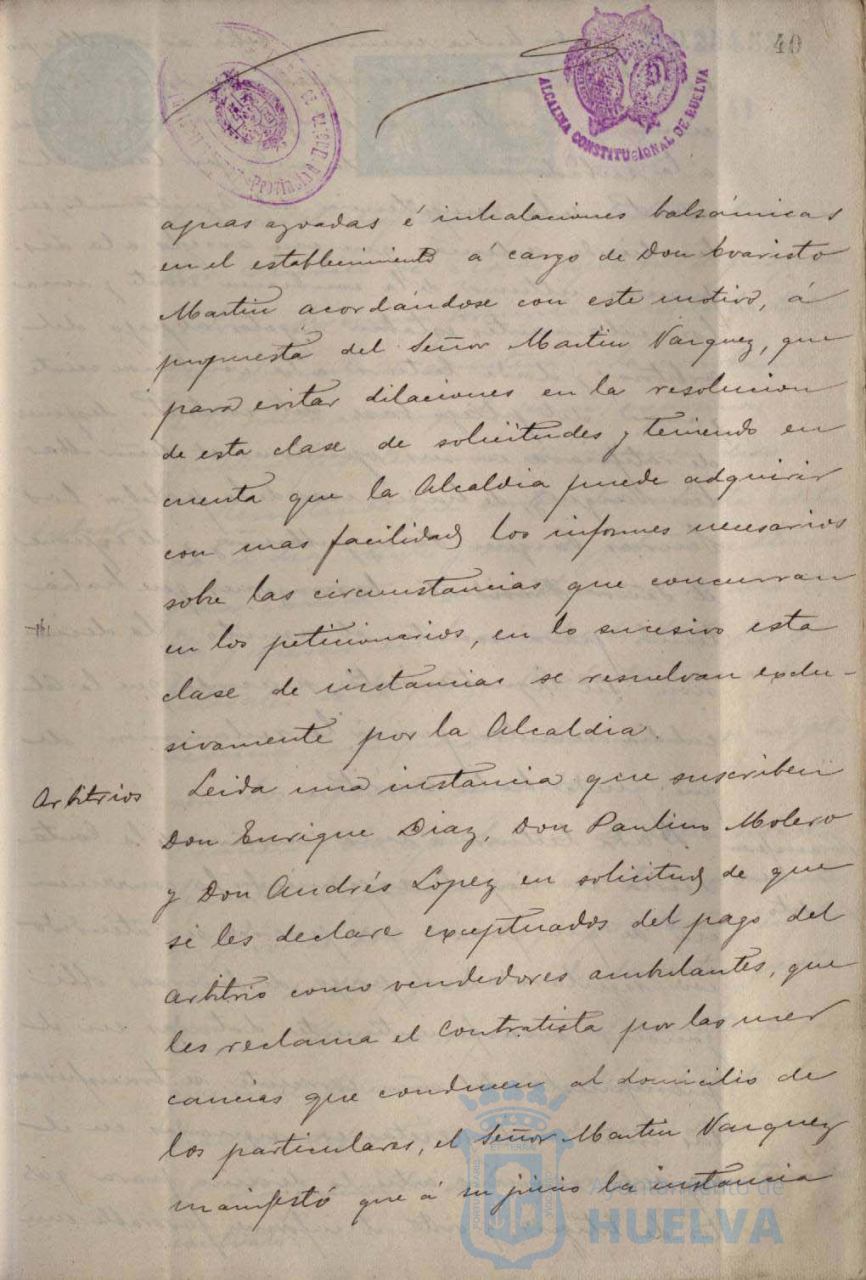 40
ALCALDIA CONSTITUCIONAL DE HUELVA
aguas azoadas é inhalaciones balsámicas
en el establecimiento á cargo de Don Evaristo
Martin acordándose con este motivo, á
propuesta del Señor Martin Vazquez, que
para evitar dilaciones en la resolucion
de esta clase de solicitudes y teniendo en
cuenta que la Alcaldia puede adquirir
con mas facilidad los informes necesarios
sobre las circunstancias que concurran
en los peticionarios, en lo sucesivo esta
clase de instancias se resuelvan exclu-
sivamente por la Alcaldia.
Arbitrios
Leida una instancia que suscriben
Don Enrique Diaz, Don Paulino Molero
y Don Andrés Lopez en solicitud de que
se les declare exceptuados del pago del
arbitrio como vendedores ambulantes, que
les reclama el contratista por las mer
cancias que conducen al domicilio de
los particulares, el Señor Martin Vazquez
manifestó que á su juicio la instancia
Ayuntamiento de
HUELVA